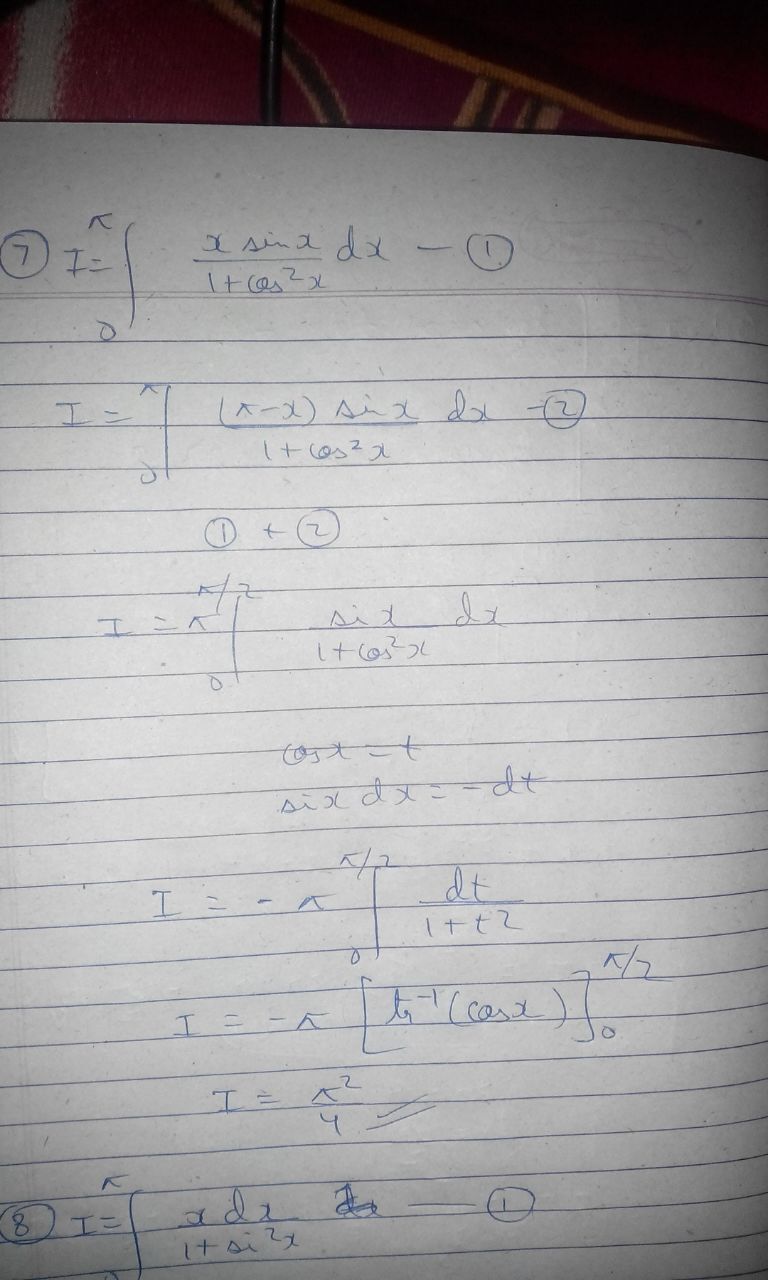 ⑦ I = ∫₀^π x sinx / 1+cos²x dx — ①
I = ∫₀^π (π-x) sinx / 1+cos²x dx — ②
① + ②
I = π ∫₀^π/2 six / 1+cos²x dx
cosx = t
six dx = -dt
I = -π ∫₀^π/2 dt / 1+t2
I = -π [tn⁻¹(cosx)]₀^π/2
I = π² / 4
⑧ I = ∫₀^π x dx / 1+si²x — ①